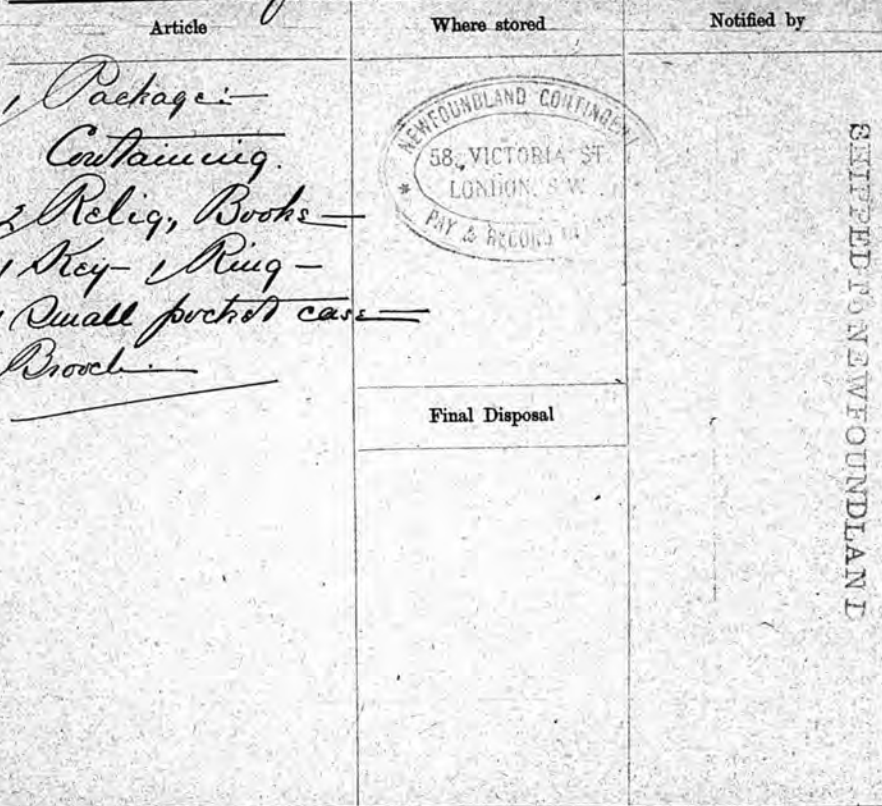 Article
Where stored
Notified by
1 Package:—
Containing.
2 Relig., Books —
1 Key — 1 Ring —
1 Small pocket case —
Brooch —
NEWFOUNDLAND CONTINGENT
58, VICTORIA ST.
LONDON, S.W.
PAY & RECORD
Final Disposal
SHIPPED TO NEWFOUNDLAND